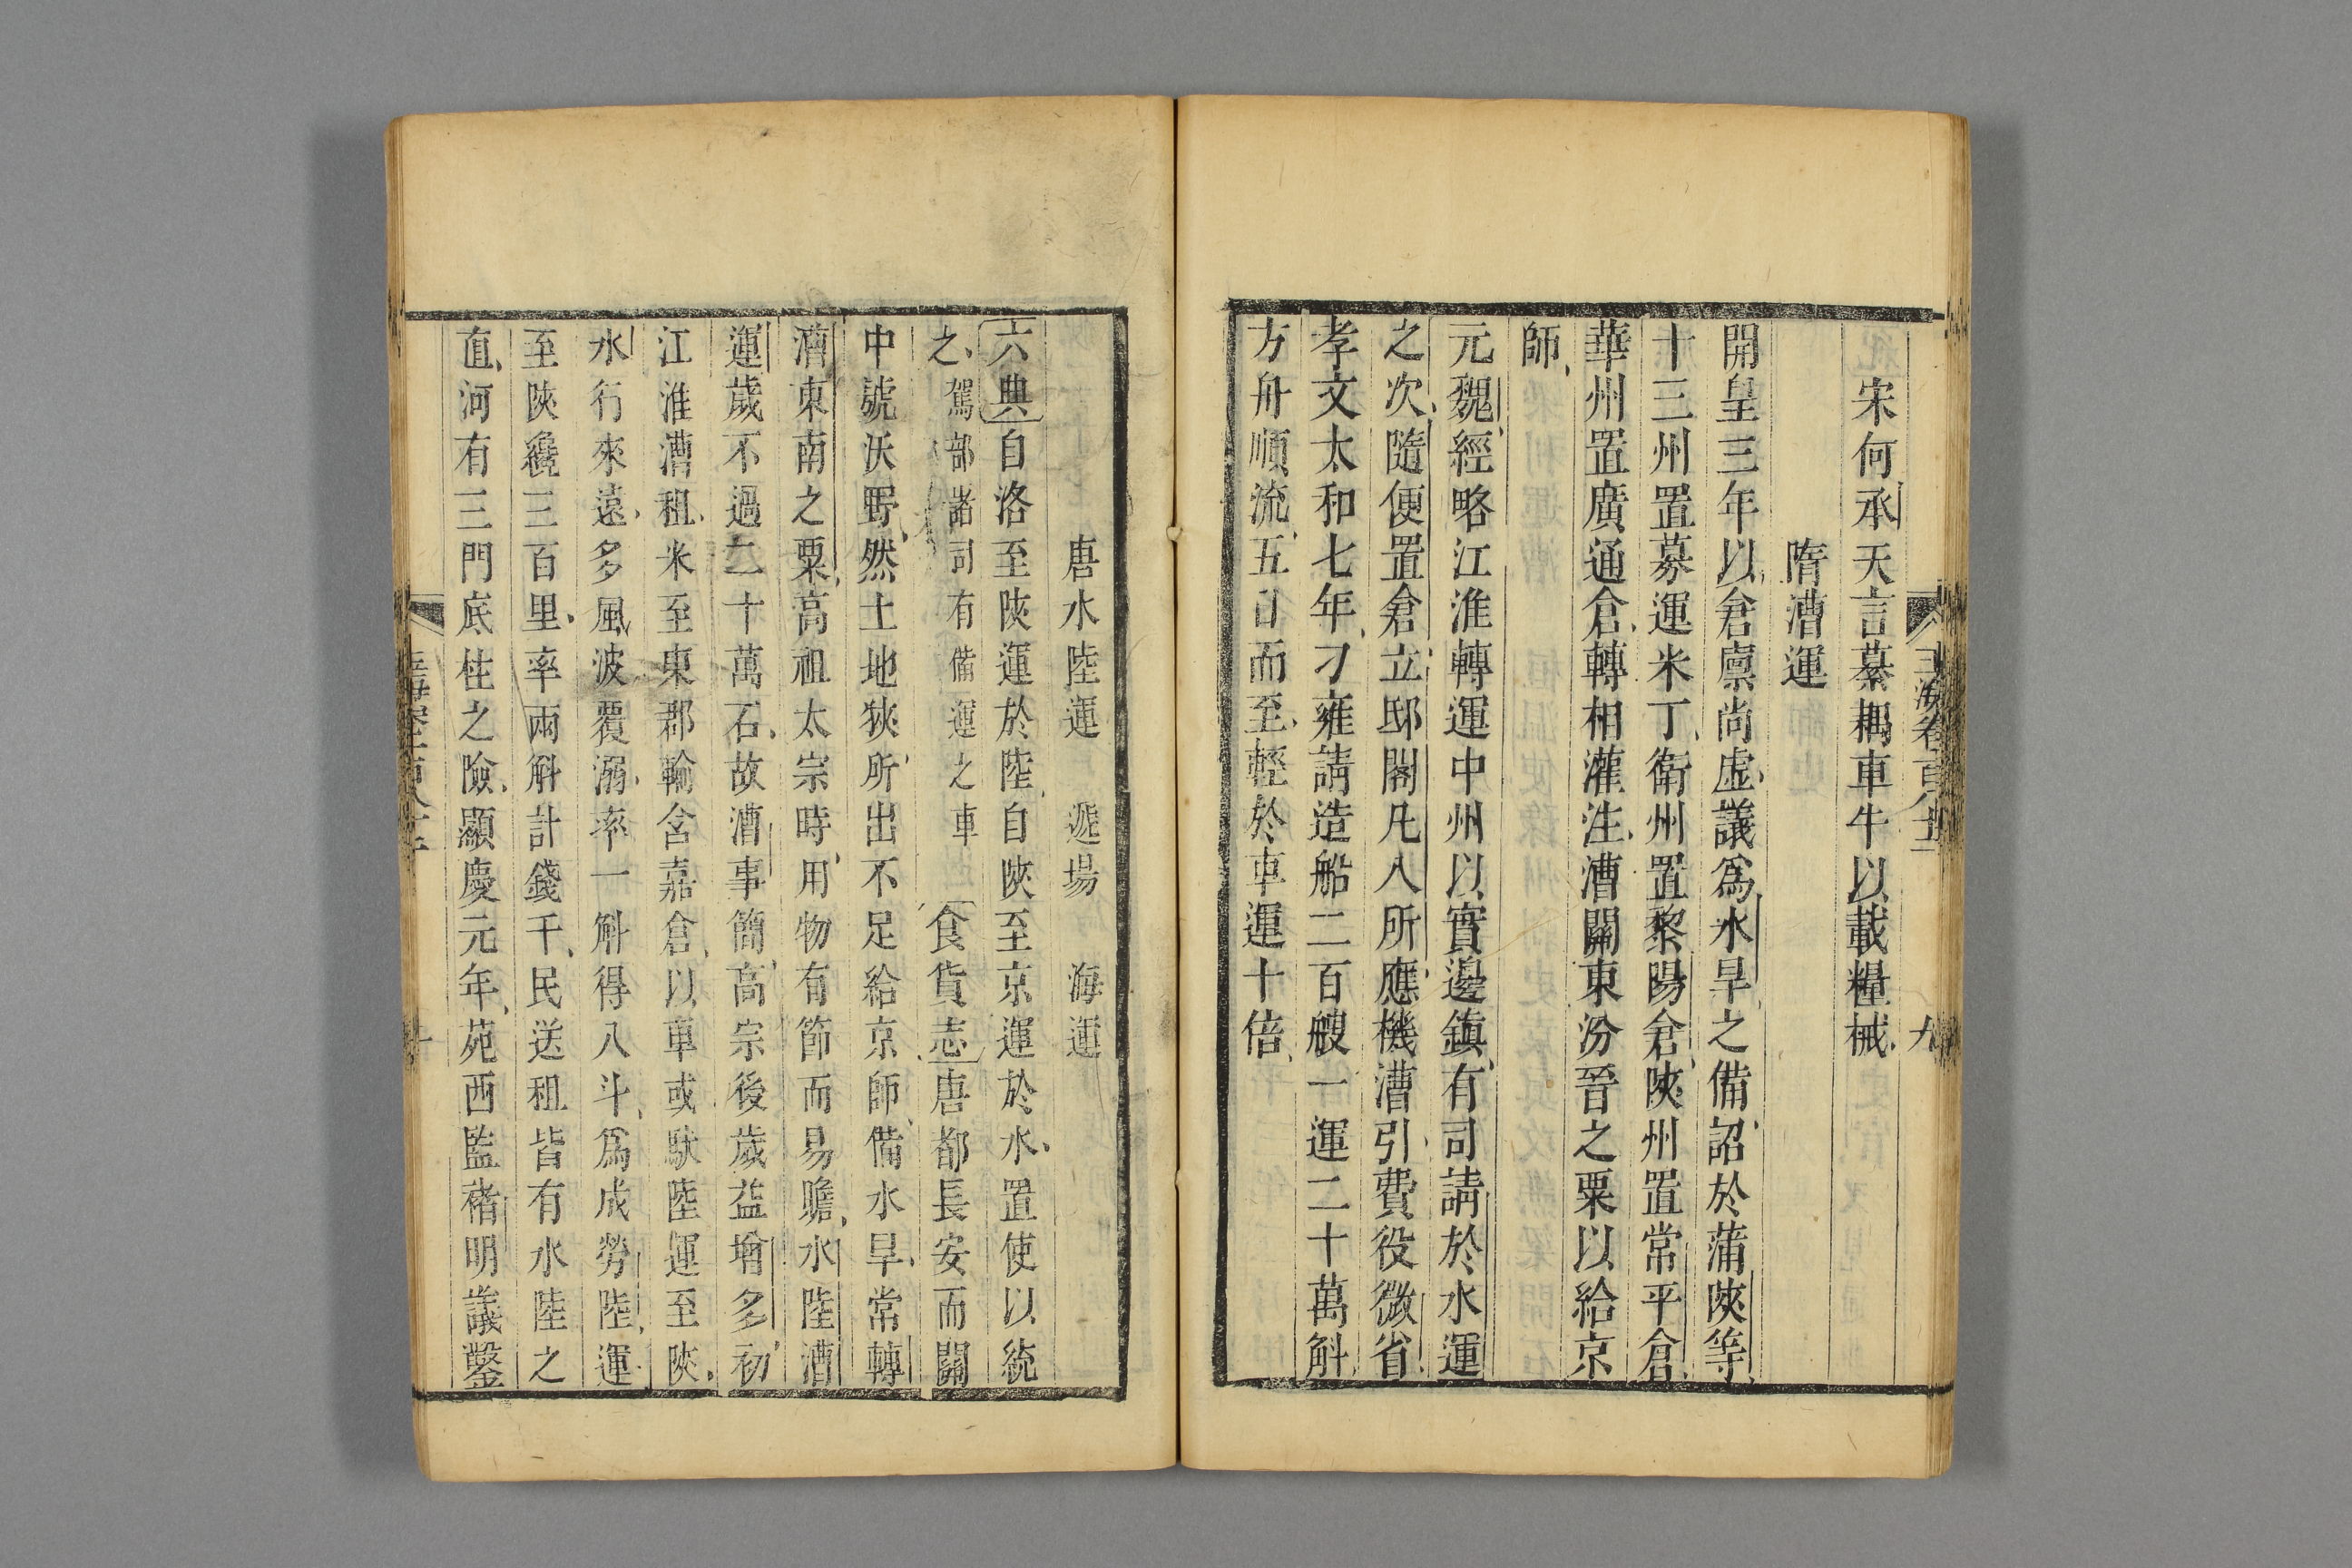 玉海卷一百八十五
九
宋何承天言纂耦車牛以載糧械
隋漕運
開皇三年以倉廪尚虛議爲水旱之備詔於蒲陝等
十三州置募運米丁衛州置黎陽倉陝州置常平倉
華州置廣通倉轉相灌注漕關東汾晉之粟以給京
師
元魏經略江淮轉運中州以實邊鎮有司請於水運
之次隨便置倉立邸閣凡八所應機漕引費役微省
孝文太和七年刁雍請造船二百艘一運二十萬斛
方舟順流五日而至輕於車運十倍
唐水陸運 遞場 海運
六典自洛至陝運於陸自陝至京運於水置使以統
之駕部諸司有備運之車食貨志唐都長安而關
中號沃野然土地狹所出不足給京師備水旱常轉
漕東南之粟高祖太宗時用物有節而易贍水陸漕
運歲不過二十萬石故漕事簡高宗後歲益增多初
江淮漕租米至東都輸含嘉倉以車或馱陸運至陝
水行來遠多風波覆溺率一斛得八斗爲成勞陸運
至陝纔三百里率兩斛計錢千民送租皆有水陸之
直河有三門底柱之險顯慶元年苑西監褚明議鑿